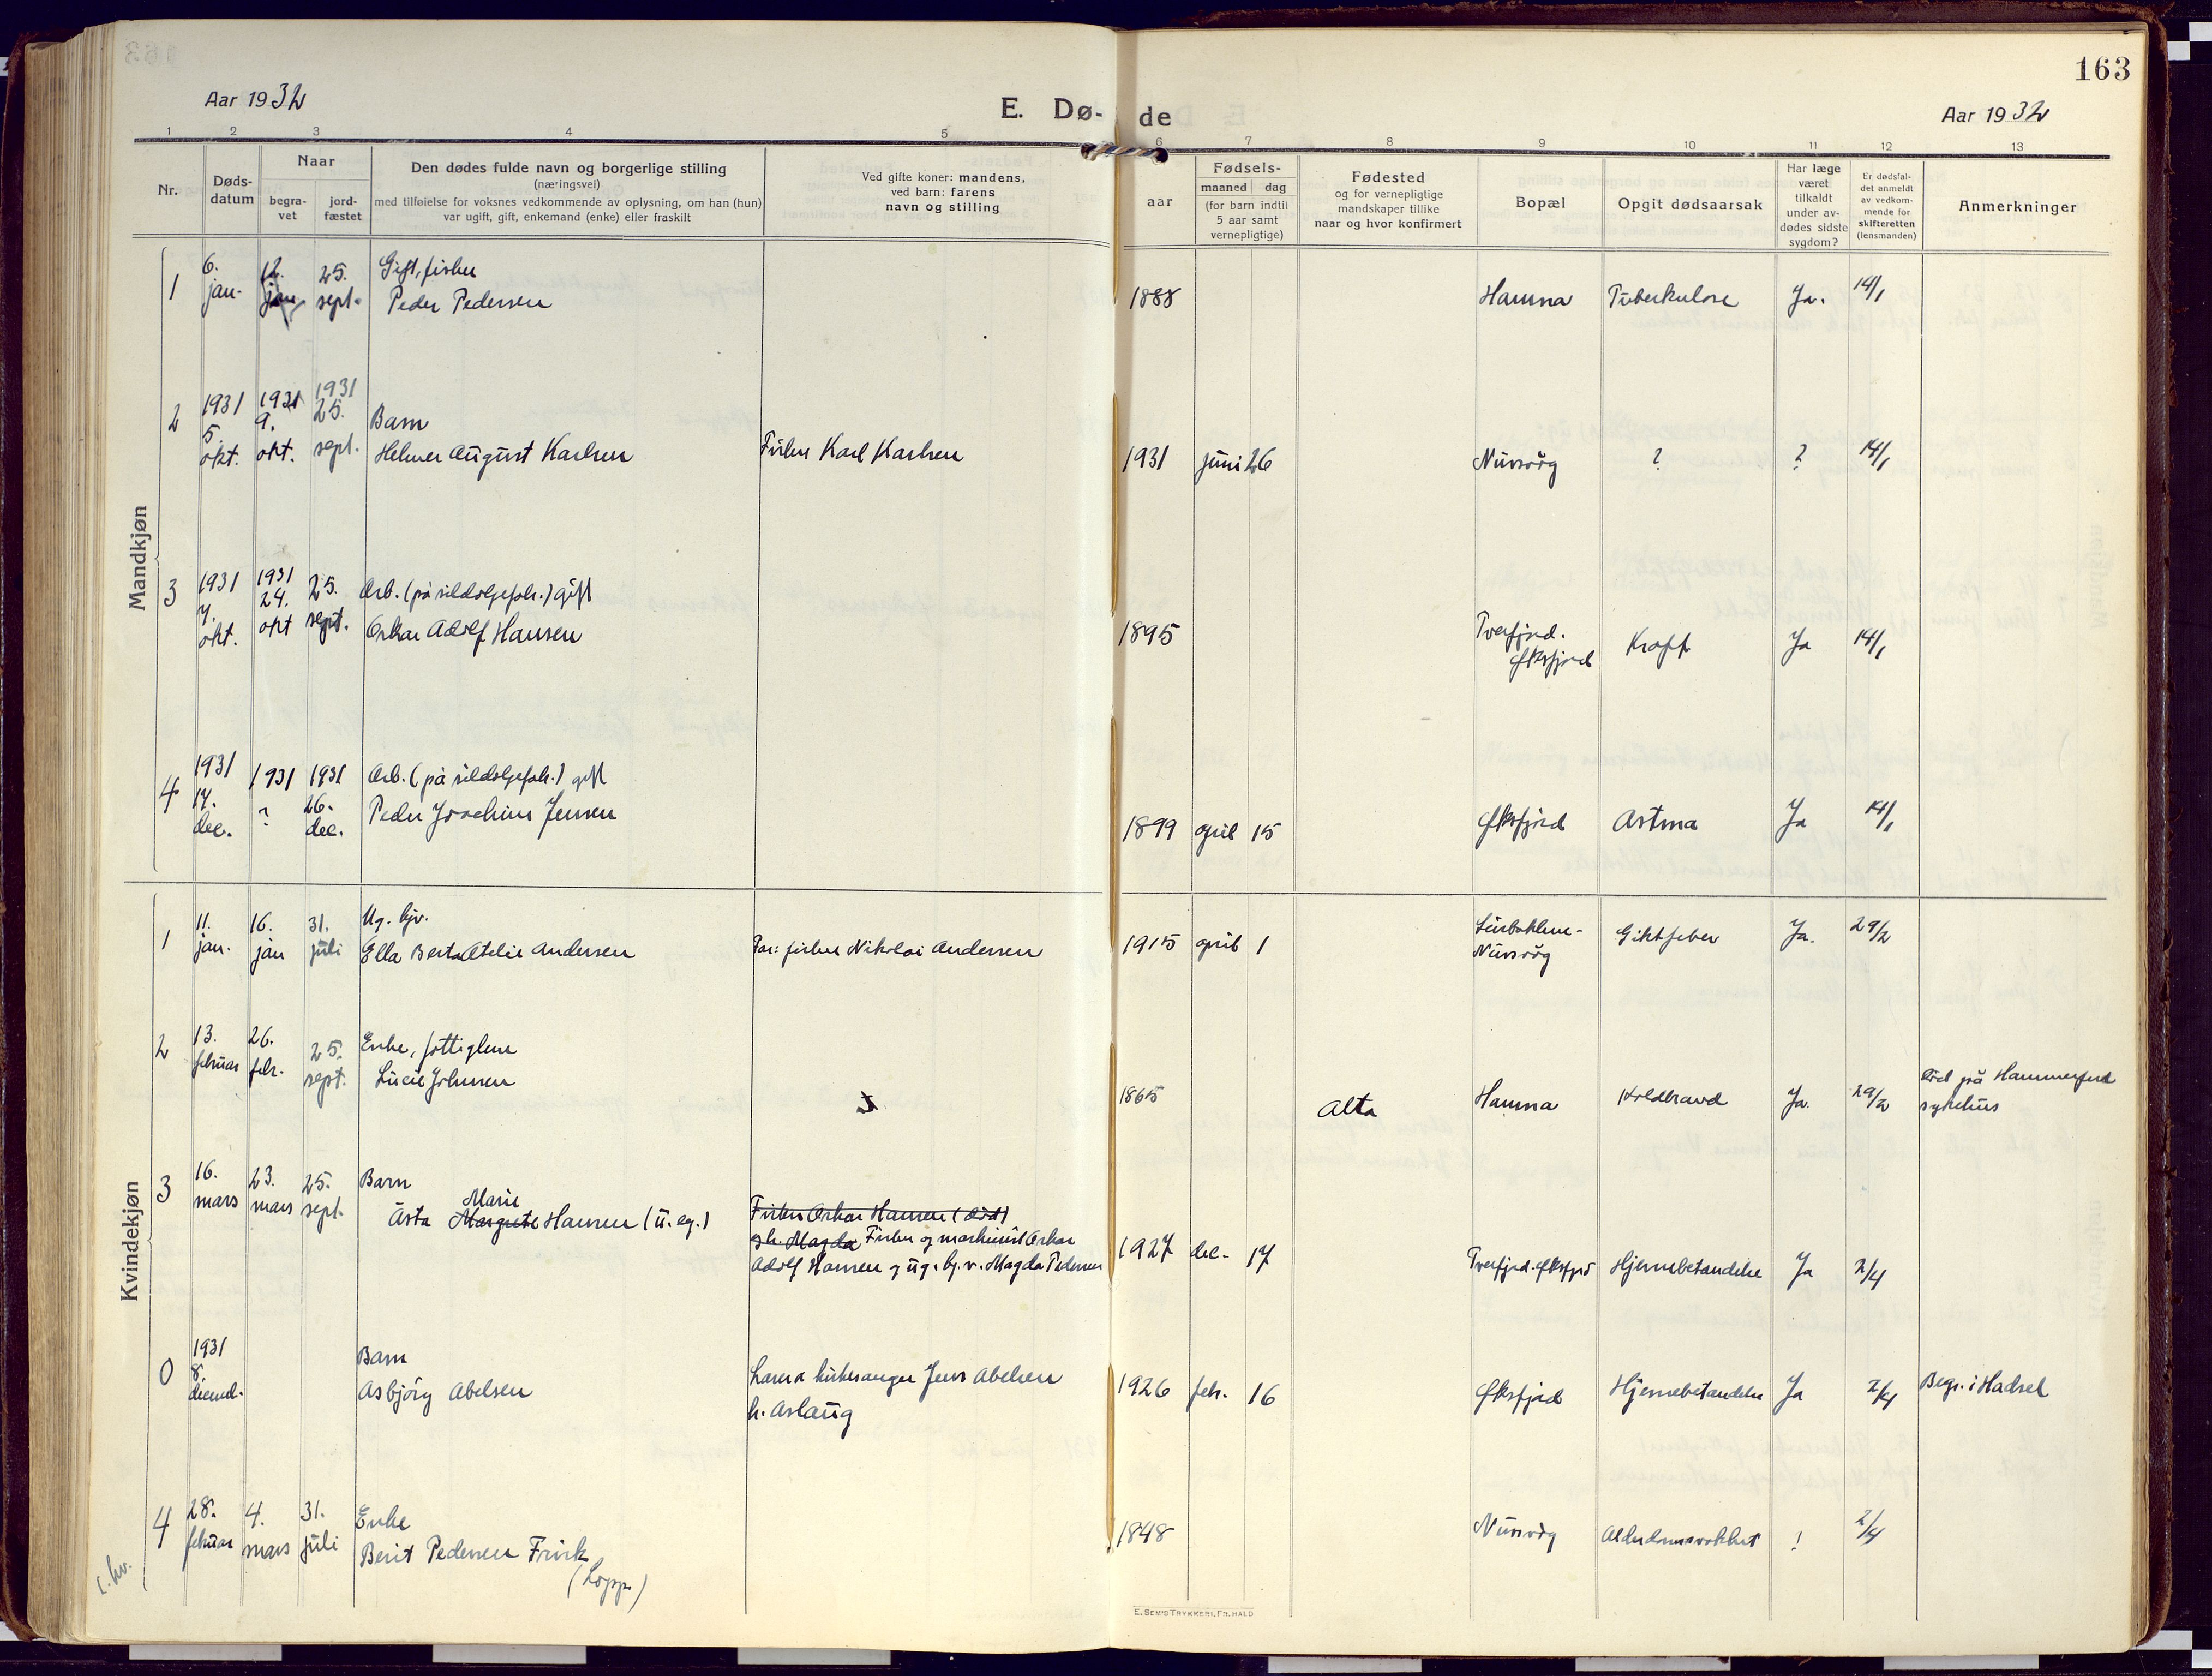 163
Aar 1932
E. Dø- de
Aar 1932
1 2 3 4 5 6 7 8 9 10 11 12 13
Nr.
Døds-
datum
Naar
begra-
vet
jord-
fæstet
Den dødes fulde navn og borgerlige stilling
(næringsvei)
med tilføielse for voksnes vedkommende av oplysning, om han (hun)
var ugift, gift, enkemand (enke) eller fraskilt
Ved gifte koner: mandens,
ved barn: farens
navn og stilling
Fødsels-
aar
maaned dag
(for barn indtil
5 aar samt
vernepligtige)
Fødested
og for vernepligtige
mandskaper tillike
naar og hvor konfirmert
Bopæl
Opgit dødsaarsak
Har læge
været
tilkaldt
under av-
dødes sidste
sygdom?
Er dødsfal-
det anmeldt
av vedkom-
mende for
skifteretten
(lensmanden)
Anmerkninger
Mandkjøn
1 6. jan. 12. jan. 25. sept. Gift, fisker
Peder Pedersen 1888 Hamna Tuberkulose Ja. 14/1
2 1931 5. okt. 1931 9. okt. 1931 25. sept. Barn
Helmer August Karlsen Fisker Karl Karlsen 1931 juni 26 Nuvsvåg ? ? 14/1
3 1931 7. okt. 1931 24. okt 25. sept. Arb. (på sildoljefabr.) gift
Oskar Adolf Hansen 1895 Tverfjord.
Øksfjord Kræft Ja 14/1
4 1931 17. dec. 1931 ? 1931 26. dec. Arb. (på sildoljefabr.) gift
Peder Joachim Jensen 1899 april 15 Øksfjord Astma Ja 14/1
Kvindekjøn
1 11. jan. 16. jan 31. juli Ug. hjv.
Ella Berta Atelie Andersen Far: fisker Nikolai Andersen 1915 april 1
Nuvsvåg Giktfeber Ja. 29/2
2 13. februar 26. febr. 25. sept. Enke, fattiglem
Lucie Johnsen 1865 Alta Hamna Koldbrand Ja. 29/2 Død på Hammerfest
sykehus
3 16. mars 23. mars 25. sept. Barn
Asta Margrete Marie Hansen (u. eg.) Fisker Oskar Hansen (død)
Magda Fisker og maskinist Oskar
Adolf Hansen og ug. hj. v. Magda Pedersen 1927 dec. 17 Tverfjord. Øksfjord Hjernebetændelse Ja 2/4
0 1931 8. decemb. Barn
Asbjörg Abelsen Lærer & kirkesanger Jens Abelsen
h. Aslaug 1926 febr. 16 Øksfjord Hjernebetændelse Ja 2/4 Begr. i Hadsel
4 28. februar 4. mars 31. juli Enke
Berit Pedersen Frisk
(Loppa) 1848 Nuvsvåg Alderdomssvakhet ! 2/4
E. SEM'S TRYKKERI, FR.HALD